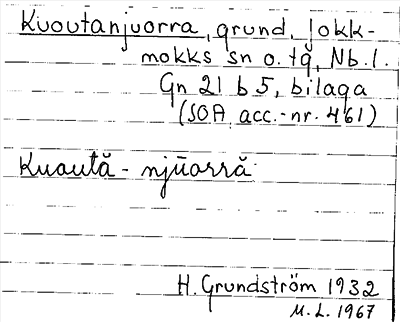 Kuoutanjuorra, grund, Jokk-
mokks sn o. tg, Nb. l.
Gn 21 b 5, bilaga
(SOA acc.-nr. 461)
Kuoută - njūorră
H. Grundström 1932
M. L. 1967